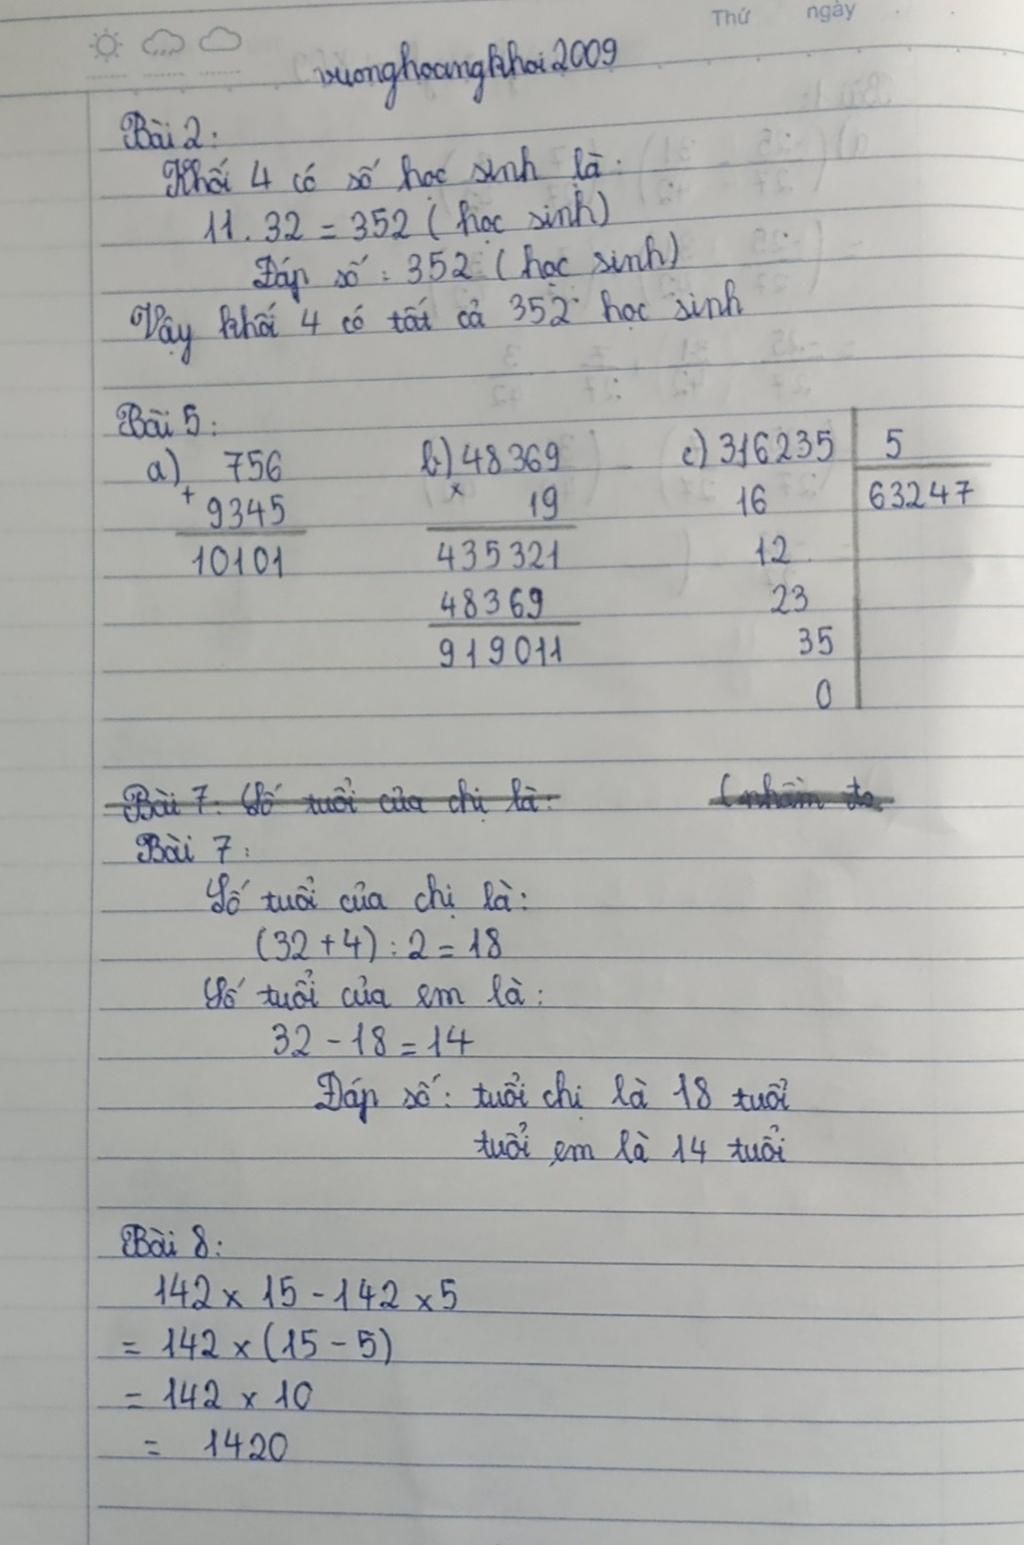 Thứ ngày
vuonghoangkhoi2009
Bài 2:
Khối 4 có số học sinh là:
11.32 = 352 (học sinh)
Đáp số: 352 (học sinh)
Vậy khối 4 có tất cả 352 học sinh
Bài 5:
a) 756
+ 9345
10101
b) 48369
× 19
435321
48369
919011
c) 316235 5
16 63247
12
23
35
0
Bài 7: Số tuổi của chị là: (nhầm
Bài 7:
Số tuổi của chị là:
(32+4):2=18
Số tuổi của em là:
32-18=14
Đáp số: tuổi chị là 18 tuổi
tuổi em là 14 tuổi
Bài 8:
142 × 15 - 142 × 5
= 142 × (15 - 5)
= 142 × 10
= 1420